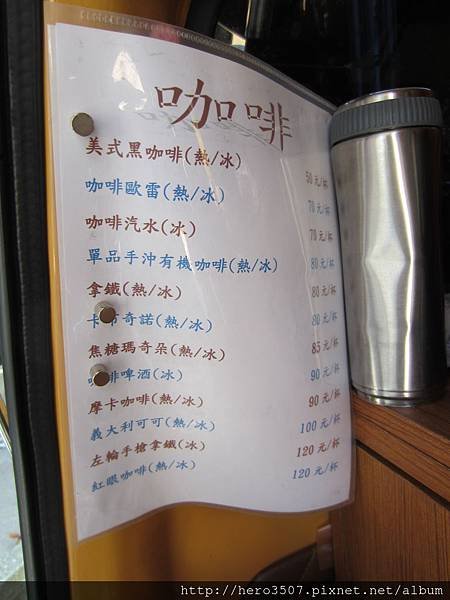 咖啡
美式黑咖啡(熱/冰) 50元/杯
咖啡歐雷(熱/冰) 70元/杯
咖啡汽水(冰) 70元/杯
單品手沖有機咖啡(熱/冰) 80元/杯
拿鐵(熱/冰) 80元/杯
卡布奇諾(熱/冰) 80元/杯
焦糖瑪奇朵(熱/冰) 85元/杯
咖啡啤酒(冰) 90元/杯
摩卡咖啡(熱/冰) 90元/杯
義大利可可(熱/冰) 100元/杯
左輪手槍拿鐵(冰) 120元/杯
紅眼咖啡(熱/冰) 120元/杯
http://hero3507.pixnet.net/album